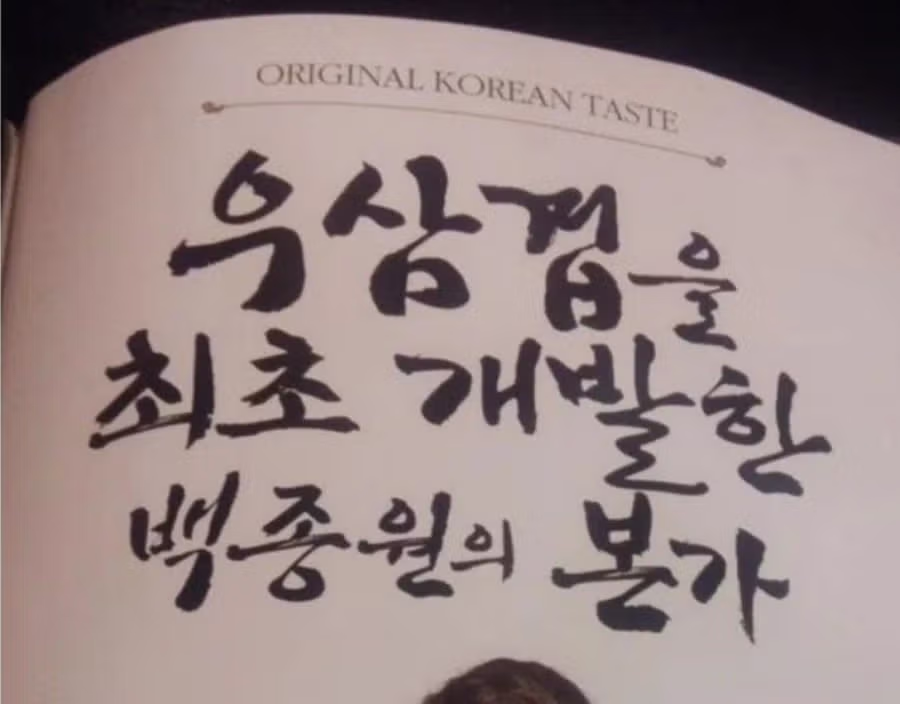 ORIGINAL KOREAN TASTE
우삼겹을
최초 개발한
백종원의 본가